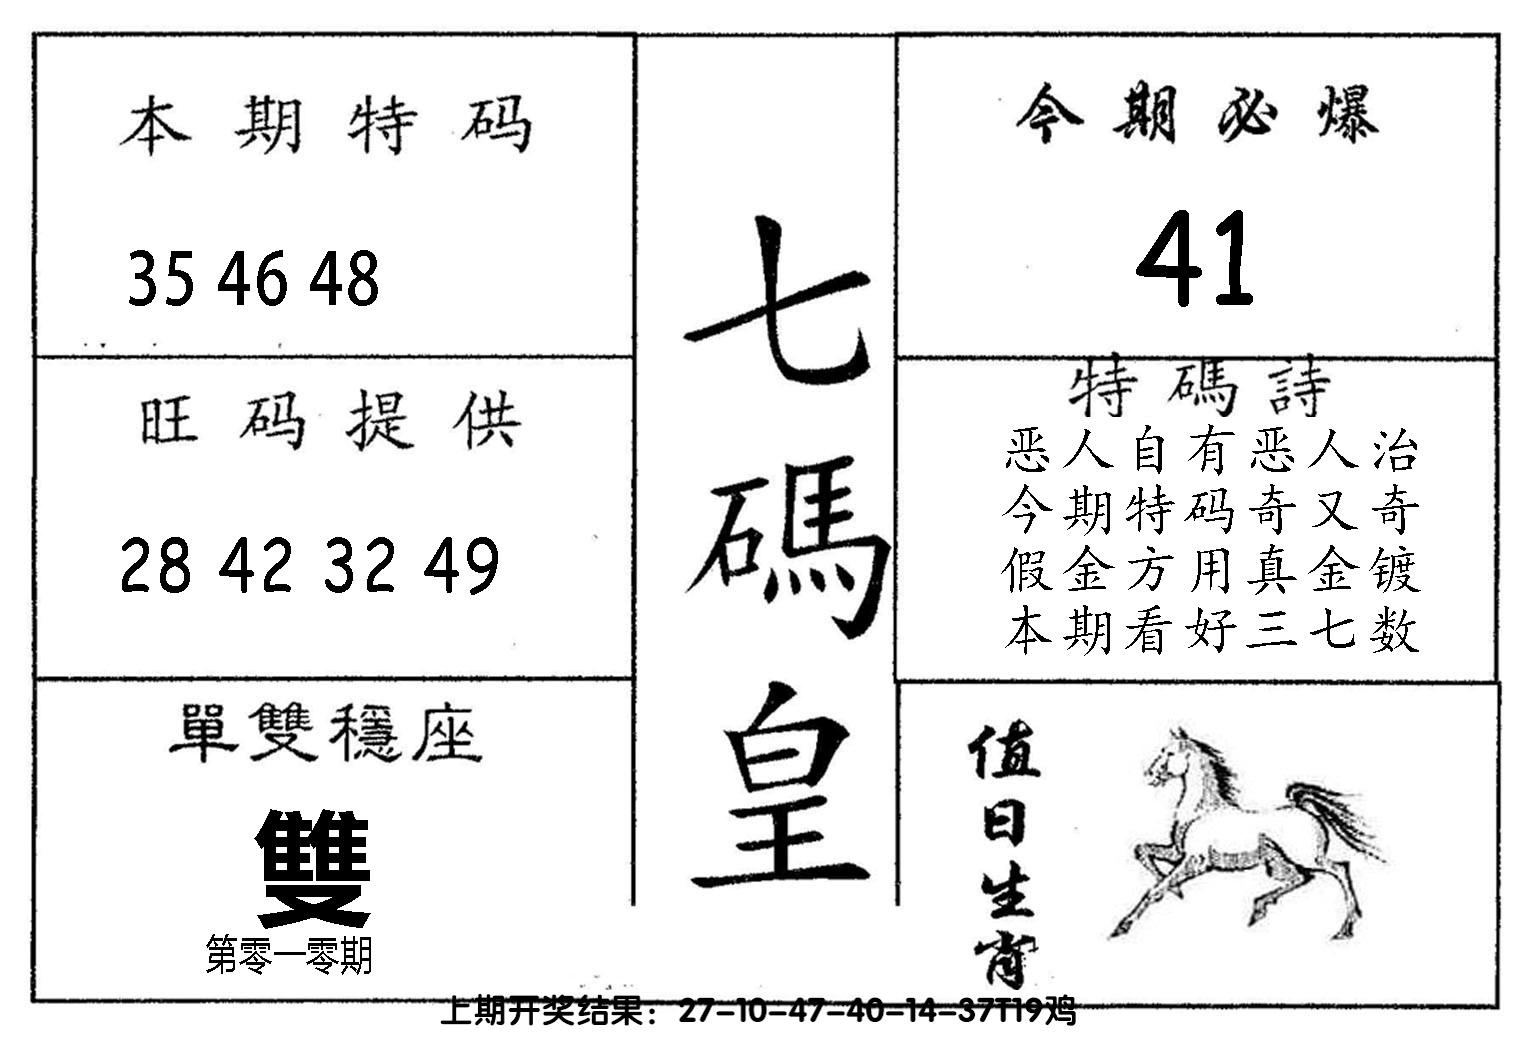 本期特码
35 46 48
旺码提供
28 42 32 49
單雙穩座
雙
第零一零期
七碼皇
今期必爆
41
特碼詩
恶人自有恶人治
今期特码奇又奇
假金方用真金镀
本期看好三七数
值日生肖
上期开奖结果：27-10-47-40-14-37T19鸡